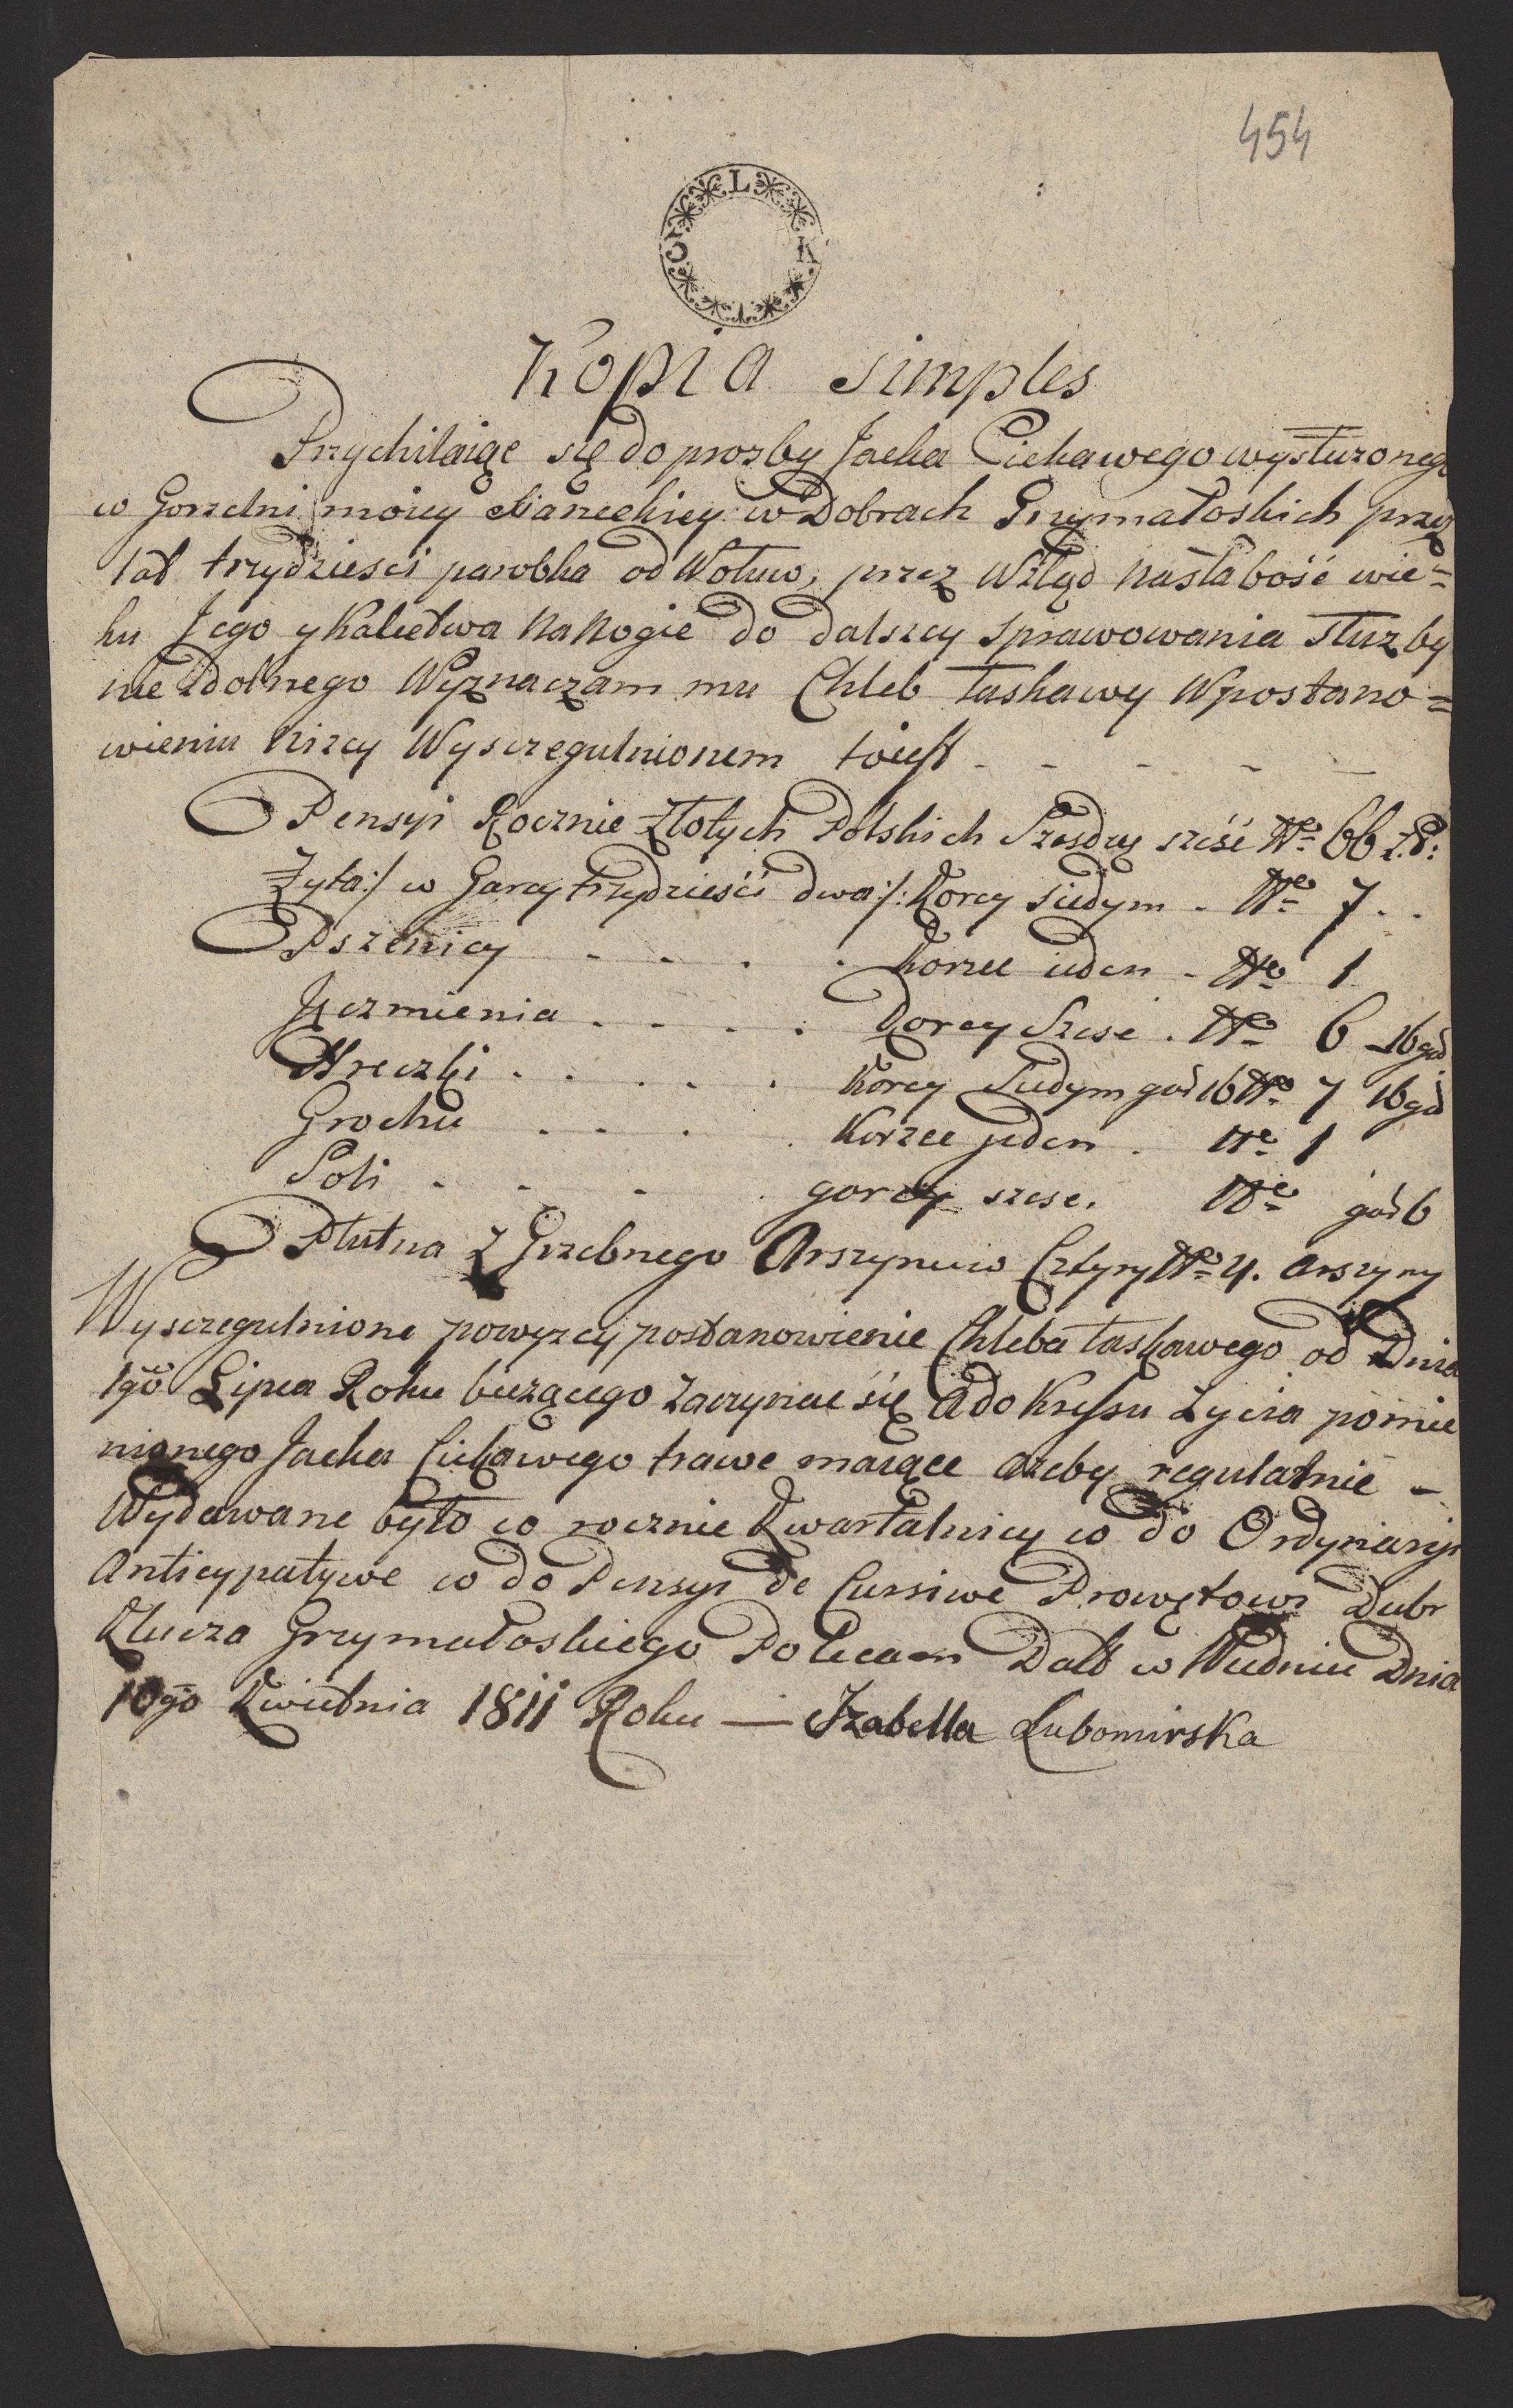 454
L K I C
Kopia Simples
Przychilaiąc się do prozby Jacka Ciekawego wysłuzonego
w Gorzelni moiey w Dobrach Grzymałoskich przez
lat trzydziesci parobka od Wołuw, przez Wzląd na słabość wie=
ku Jego y Kalectwa na Nogie do dalszey sprawowania służby
nie zdolnego Wyznaczam mu Chleb łaskawy W postano=
wieniu nizey Wyszczegulnionem toiest - - - - -
Pensyi Rocznie Złotych Polskich Szesdzię sześć No 66 z.P:
Zyta :/ w Garcy trzydzieści dwa /: Korcy siedym . No 7 . .
Pszenicy . . . . Korzec ieden - No 1
Jęczmienia . . . . Korcy Szesć . No 6 16 gar
Hreczki . . . . . Korcy Siedym gar 16 No 7 16 gar
Grochu . . . . Korzec jeden . No 1
Soli . . . . garcy szesc . No gar 6
Płutna z Grzebnego Arszynuw Cztyry No 4. arszyny
Wyszczegulnione powyzey postanowienie Chleba łaskawego od Dnia
1go Lipca Roku biezącego zaczynać się A do Kressu Zycia pomie
nionego Jacka Ciekawego trawc maiące azeby regularnie -
Wydawane było co rocznie Kwartalnicy co do Ordynaryi
Anticypatywe co do Pensyi de Cursiwe Prowętowi Dubr
Klucza Grzymałoskiego Polecam Datt w Wiedniu Dnia
10go Kwietnia 1811 Roku — Izabella Lubomirska